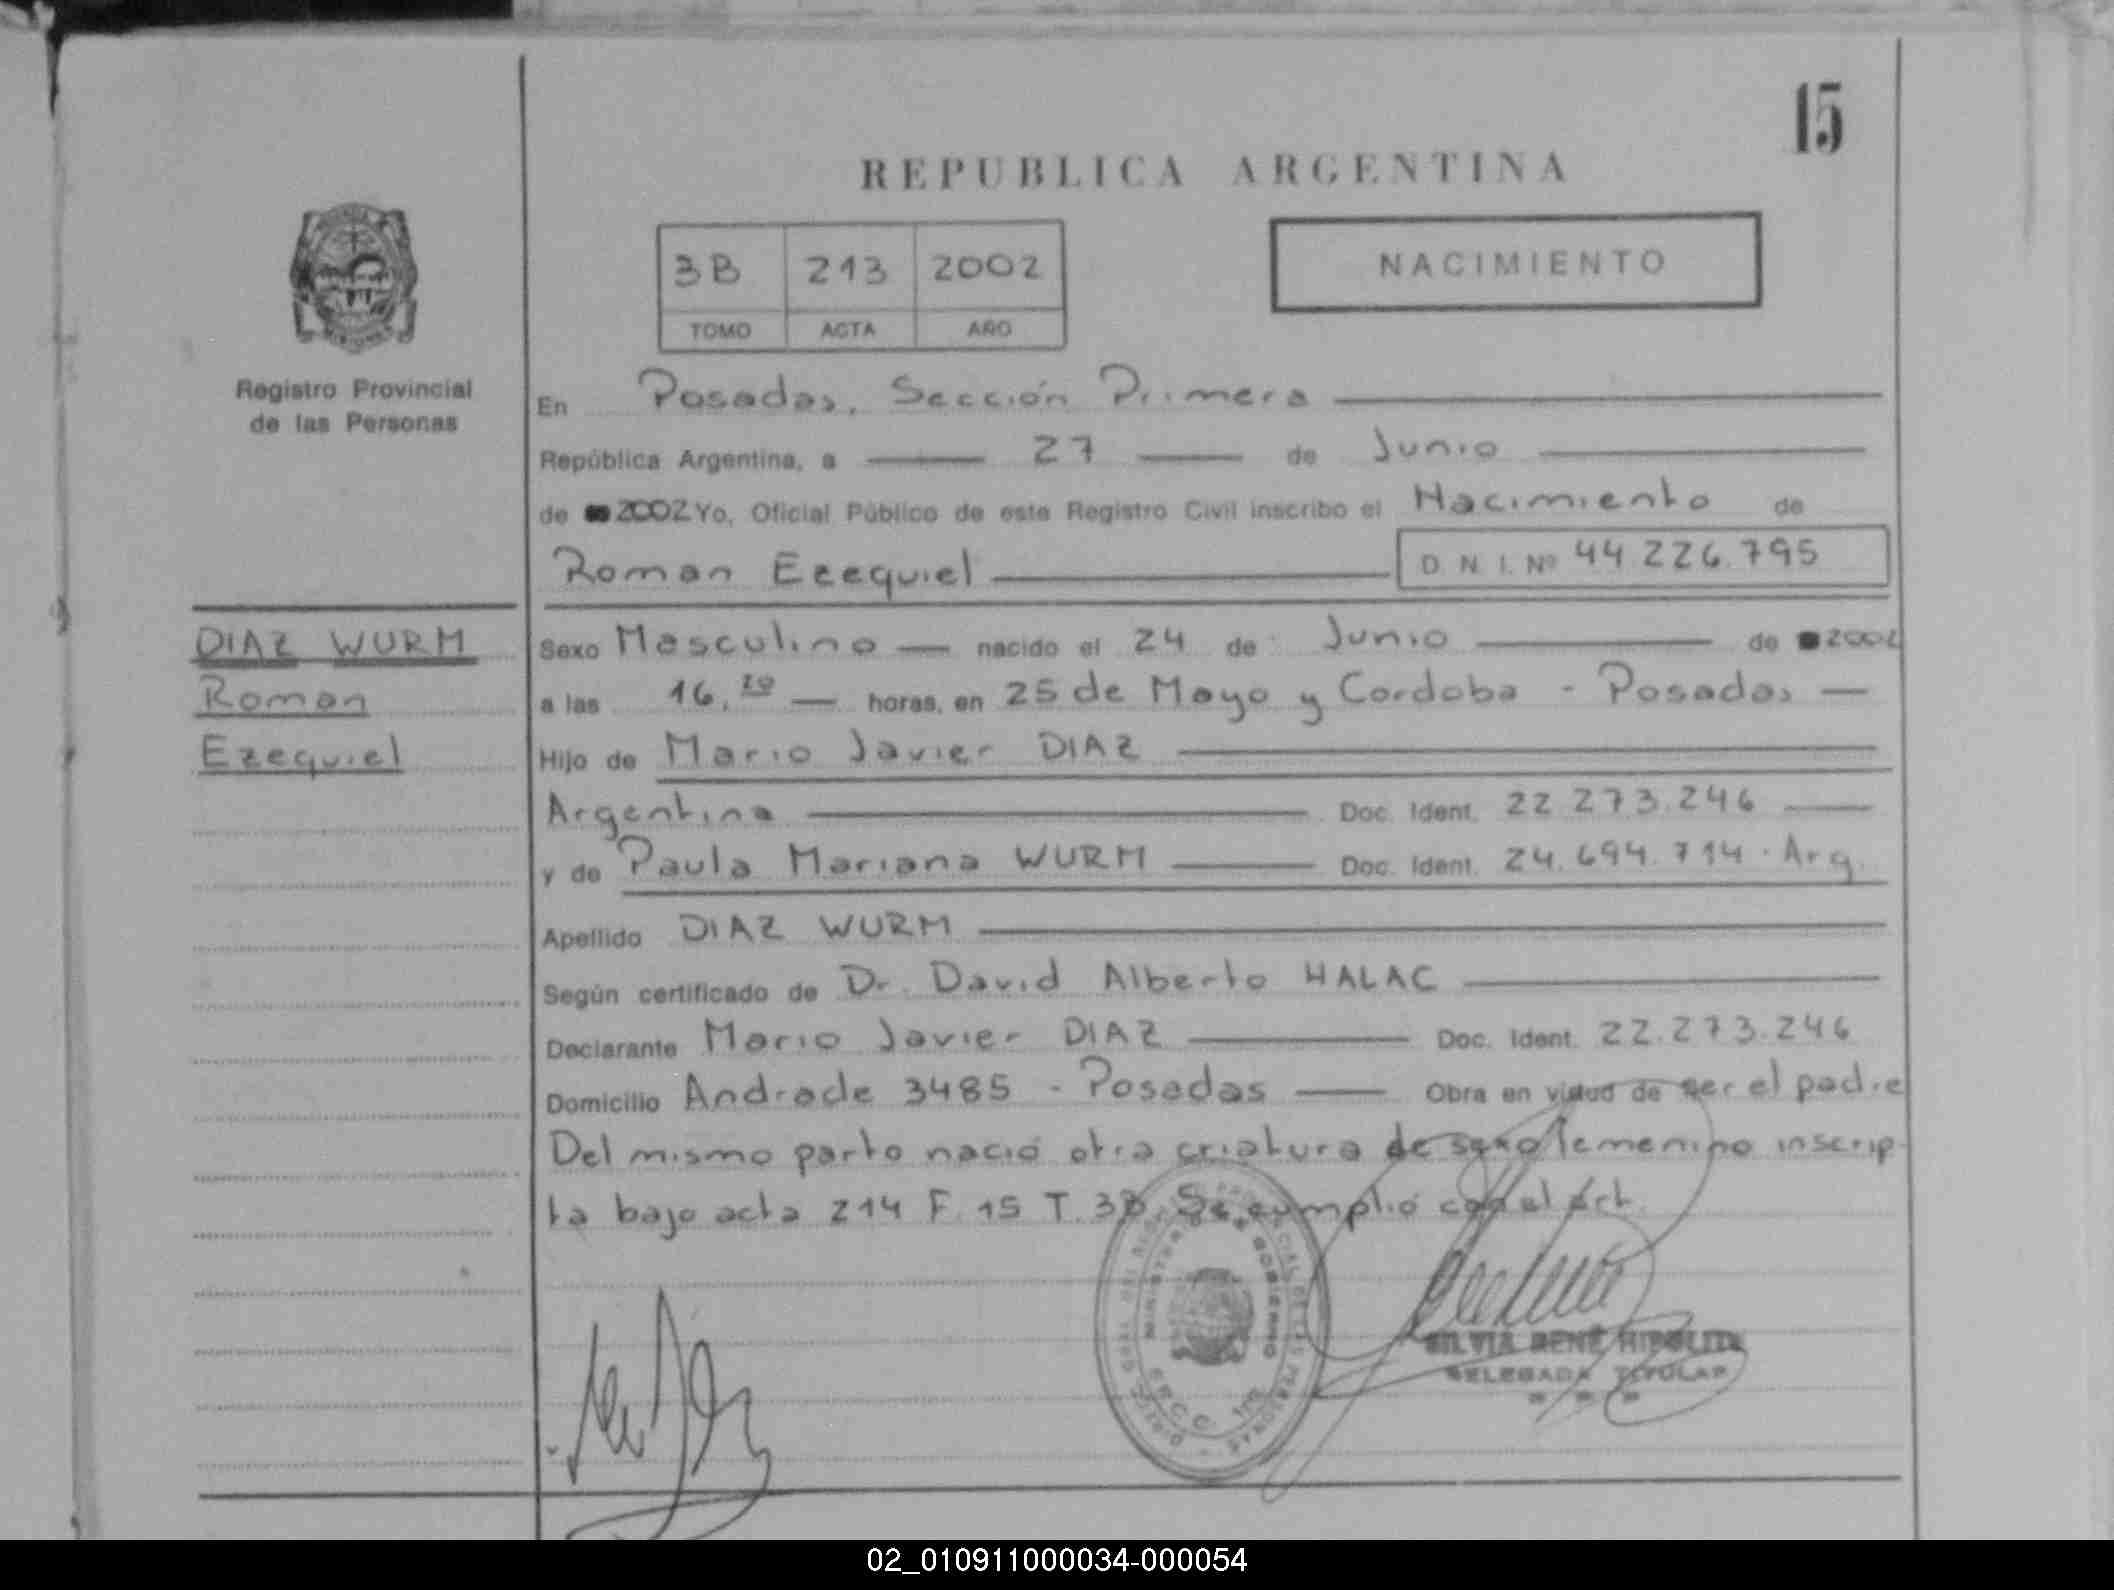 15
REPUBLICA ARGENTINA
3B 213 2002
TOMO ACTA AÑO
NACIMIENTO
Registro Provincial
de las Personas
En Posadas, Sección Primera
República Argentina, a 27 de Junio
de 2002 Yo, Oficial Público de este Registro Civil inscribo el Nacimiento de
Roman Ezequiel D. N. I. Nº 44.226.795
DIAZ WURM
Roman
Ezequiel
Sexo Masculino nacido el 24 de Junio de 2002
a las 16,20 horas, en 25 de Mayo y Cordoba - Posadas
Hijo de Mario Javier DIAZ
Argentina Doc. Ident. 22.273.246
y de Paula Mariana WURM Doc. Ident. 24.694.714. Arg.
Apellido DIAZ WURM
Según certificado de Dr. David Alberto HALAC
Declarante Mario Javier DIAZ Doc. Ident. 22.273.246
Domicilio Andrade 3485 - Posadas Obra en virtud de ser el padre
Del mismo parto nació otra criatura de sexo femenino inscrip-
ta bajo acta 214 F. 15 T. 3B. Se cumplió con el Art.
MINISTERIO DE GOBIERNO
SILVIA RENÉ HIPOLITO
DELEGADA TITULAR
02_010911000034-000054